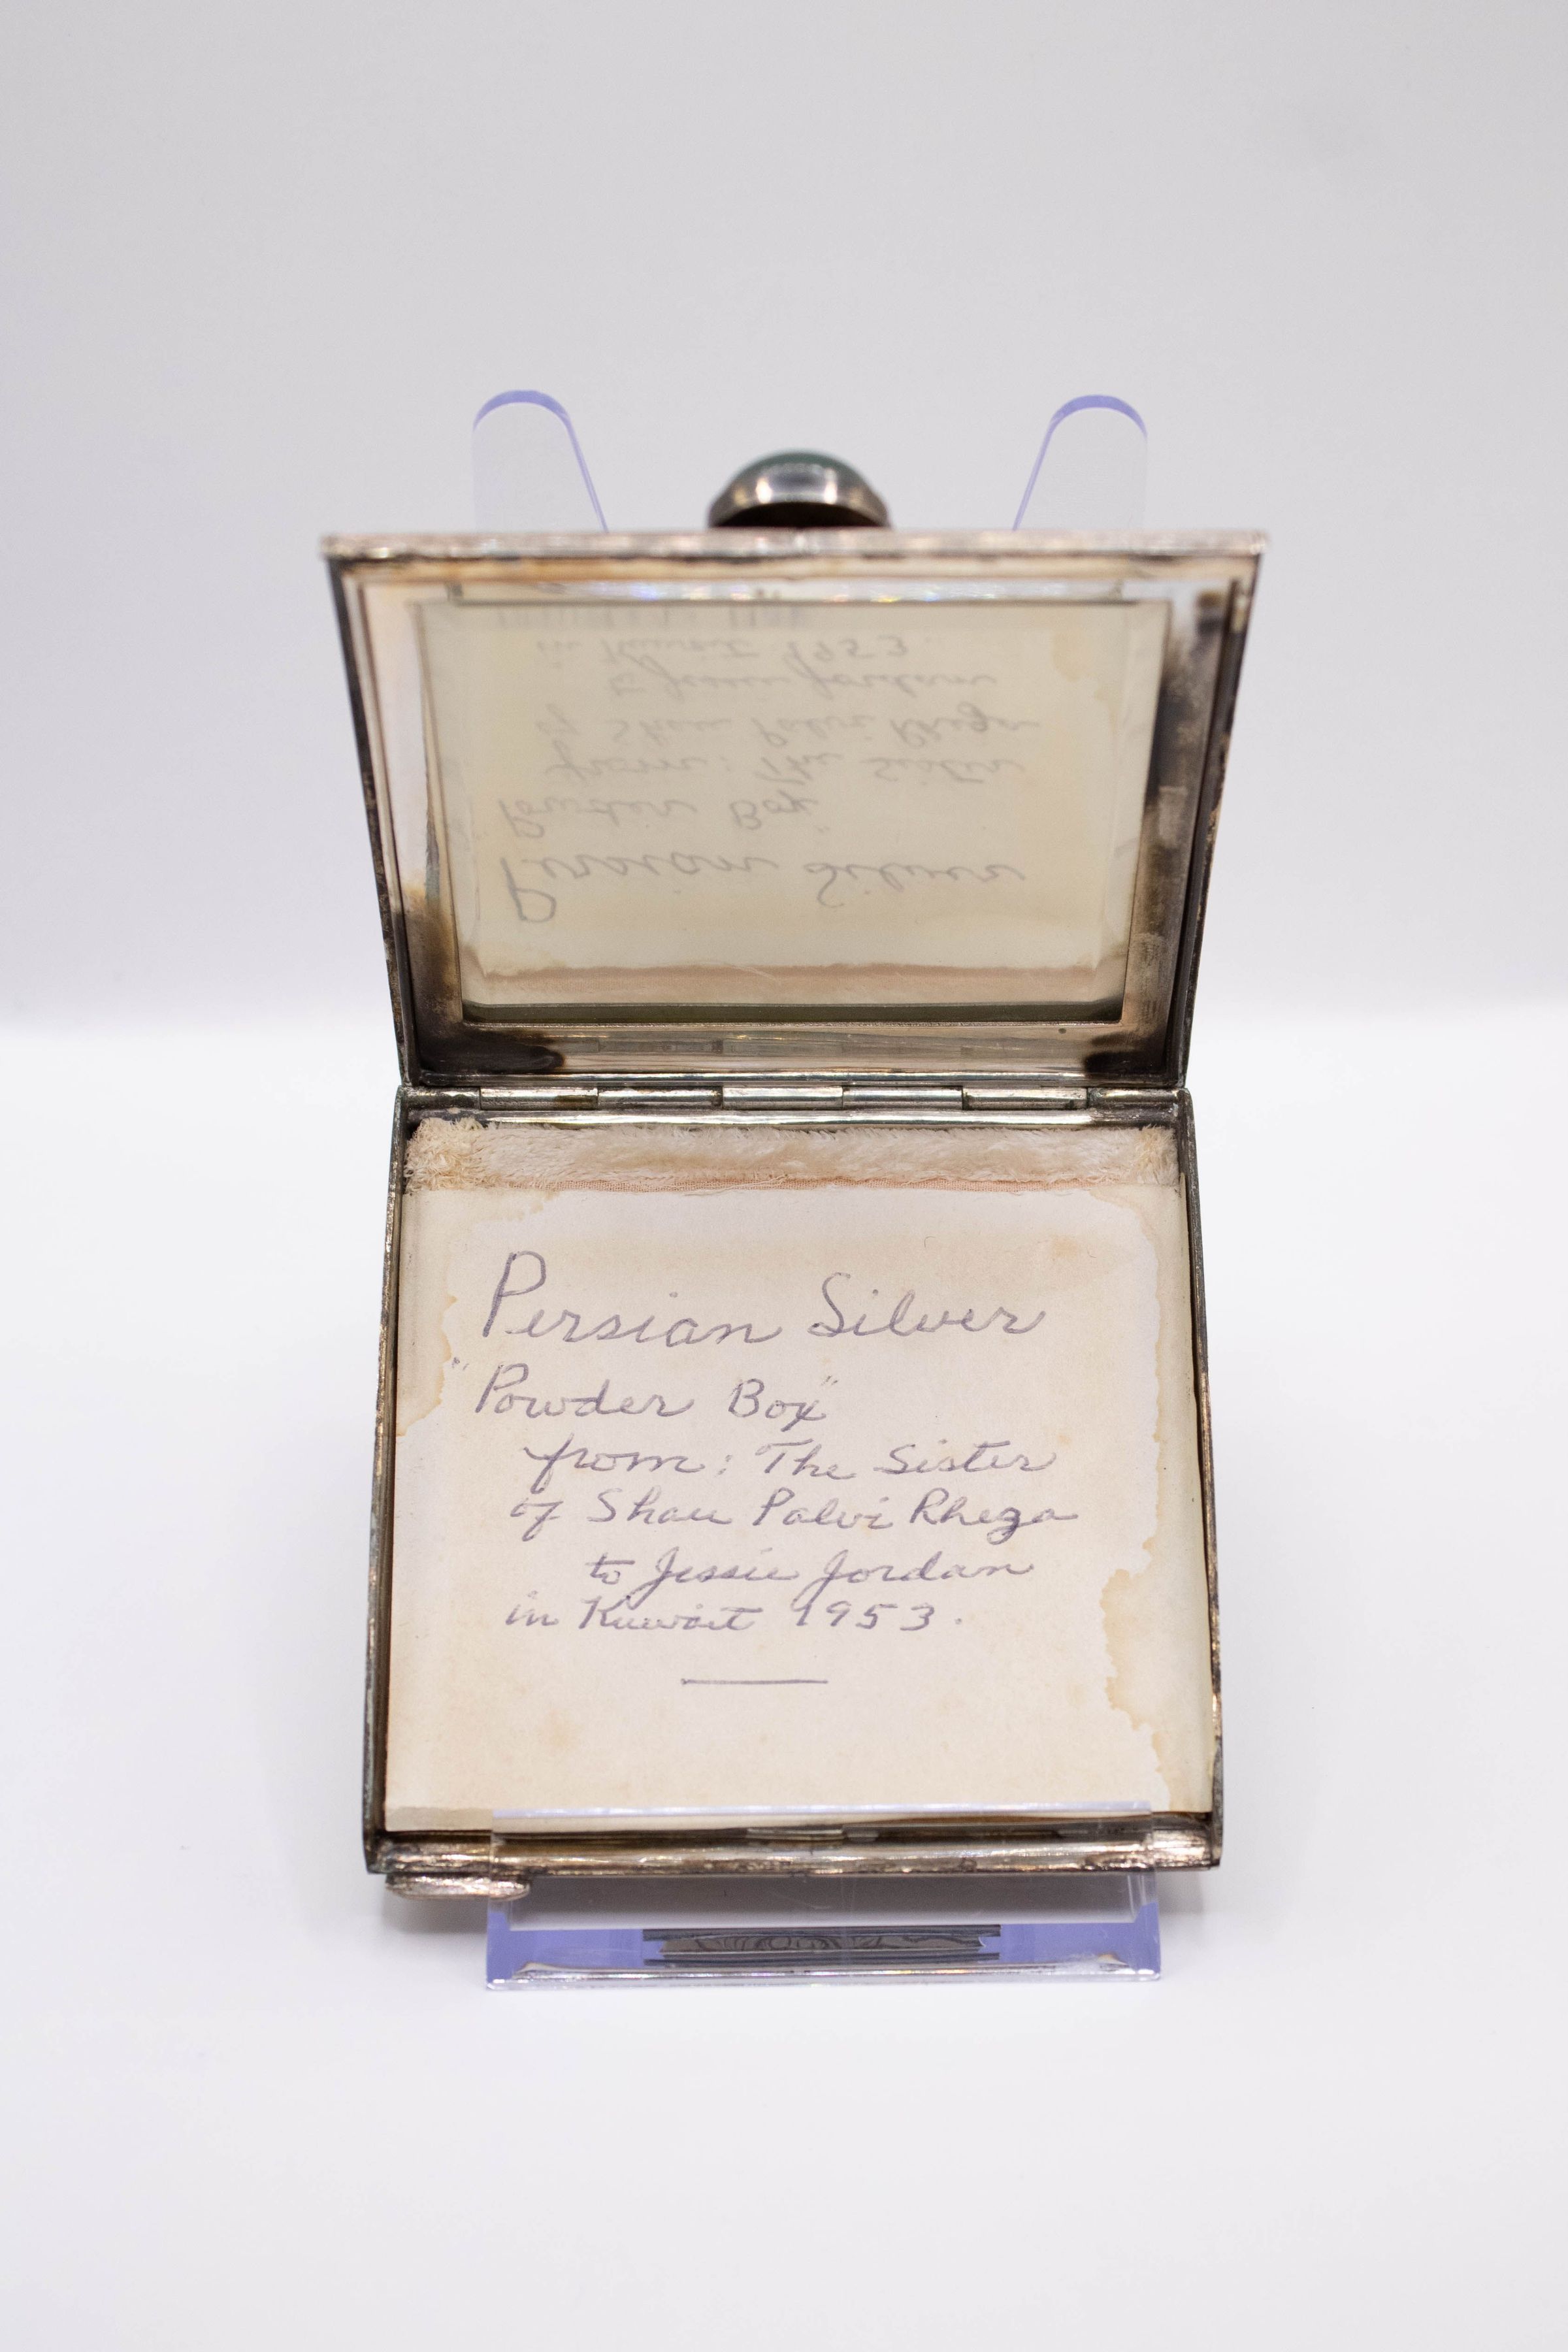 Persian Silver
"Powder Box"
from: The Sister
of Shau Palvi Rheza
to Jessie Jordan
in Kuwait 1953.